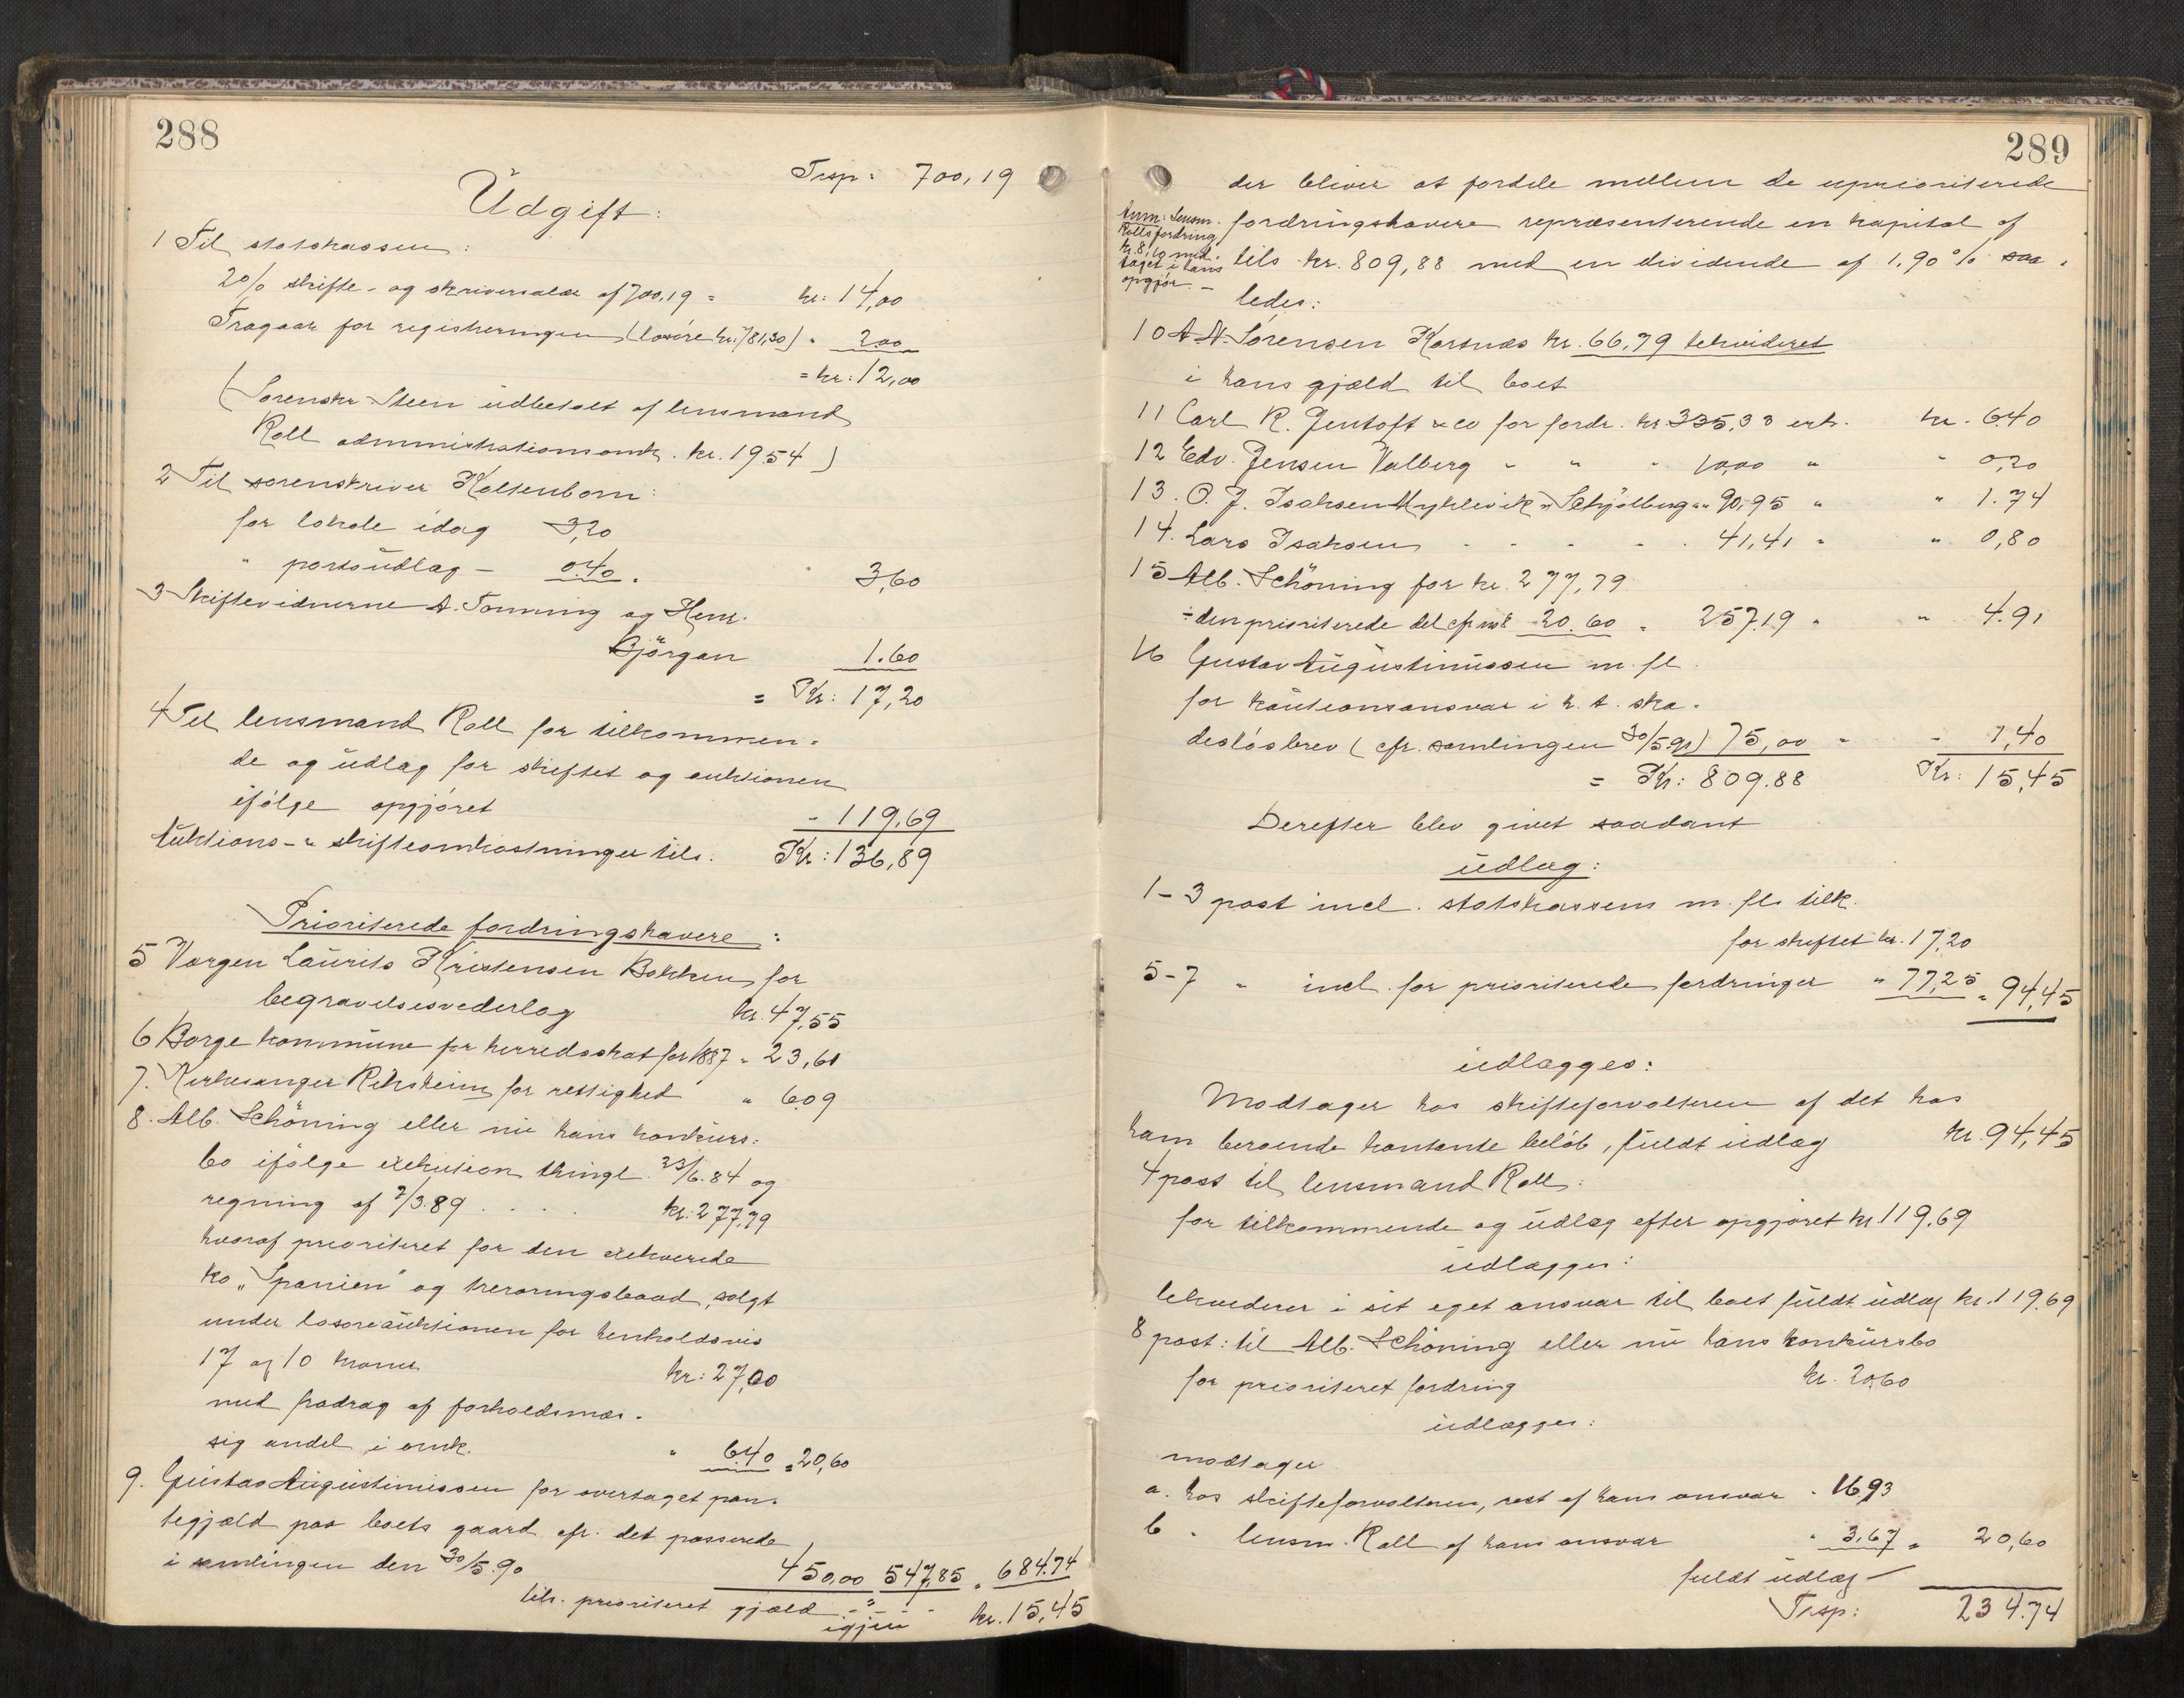 288
Trsp: 700,19
Udgift:
1 Til statskassen:
2% skifte- og skriversalær af 700,19 = kr: 14,00
Fragaar for registreringen (løsøre kr: 781,30) " 2,00
= kr: 12,00
(Sorenskr. Steen udbetalt af lensmand
Roll administrationsomk. kr. 19.54)
2 Til sorenskriver Koltenborn:
for lokale idag 3,20
" portoudlag - 0.40. " 3,60
3 Skiftevidnerne A. Tønning og Henr.
Bjørgan 1.60
= Kr: 17,20
4 Til lensmand Roll for tilkommen-
de og udlag for skiftet og auktionen
ifølge opgjøret " 119,69
Auktions- & skifteomkostninger tils. Kr: 136,89
Prioriterede fordringshavere:
5 Værgen Laurits Kristensen Bakken for
begravelsesvederlag kr. 47,55
6 Borge kommune for herredsskat for 1887 " 23,61
7. Kirkesanger Reksheim for rettighed " 6.09
8. Alb. Schöning eller nu hans konkurs-
bo ifølge exekution thingl. 23/6.84 og
regning af 2/3.89 . . . . kr: 277,79
hvoraf prioriteret for den exekverede
ko "Spanien" og treroringsbaad, solgt
under løsøreauktionen for henholdsvis
17 og 10 kroner kr: 27,00
med fradrag af forholdsmæs-
sig andel i omk. " 6.40 = 20,60
9. Gustav Augustinussen for overtaget pan-
tegjæld paa boets gaard cfr. det passerede
i samlingen den 30/5.90 450,00 547,85 = 684.74
tils. prioriteret gjæld
igjen kr. 15,45
289
der bliver at fordele mellem de uprioriterede
Anm: Lensm.
Rolls fordring
kr. 8,10 med-
taget i hans
opgjør. -
fordringshavere repræsenterende en kapital af
tils. kr. 809,88 med en dividende af 1.90% saa-
ledes:
10 A. N. Sørensen Kartnæs kr. 66,79 likvideret
i hans gjæld til boet
11 Carl R. Jentoft & co for fordr. kr. 335,33 erh. kr. 6.40
12 Edv. Jensen Valberg " " " 10,00 " " 0,20
13. O. J. Isaksen Myklevik " Schjølberg " " 90,95 " " 1.74
14. Lars Isaksen - - - - - 41,41 " " 0,80
15 Alb. Schöning for kr. 277,79
÷ den prioriterede del cfr no 8 20.60 = 257.19 " " 4.91
16 Gustav Augustinussen m. fl.
for kautionsansvar i h. t. ska-
desløsbrev (cfr. samlingen 30/5 90) 75,00 " " 1,40
= Kr: 809.88 Kr: 15,45
Derefter blev givet saadant
udlæg:
1-3 post incl. statskassens m. fl. tilk.
for skiftet kr. 17,20
5-7 " incl. for prioriterede fordringer " 77,25 = 94,45
udlægges:
Modtager hos skifteforvalteren af det hos
ham beroende kontante beløb, fuldt udlæg kr. 94,45
4 post til lensmand Roll:
for tilkommende og udlæg efter opgjøret kr. 119.69
udlægges:
likviderer i sit eget ansvar til boet fuldt udlæg kr. 119.69
8 post: til Alb. Schöning eller nu hans konkursbo
for prioriteret fordring kr. 20,60
udlægges:
modtager
a. hos skifteforvalteren, rest af hans ansvar " 16.93
b " lensm. Roll af hans ansvar " 3,67 = 20,60
fuldt udlæg
Trsp: 234.74